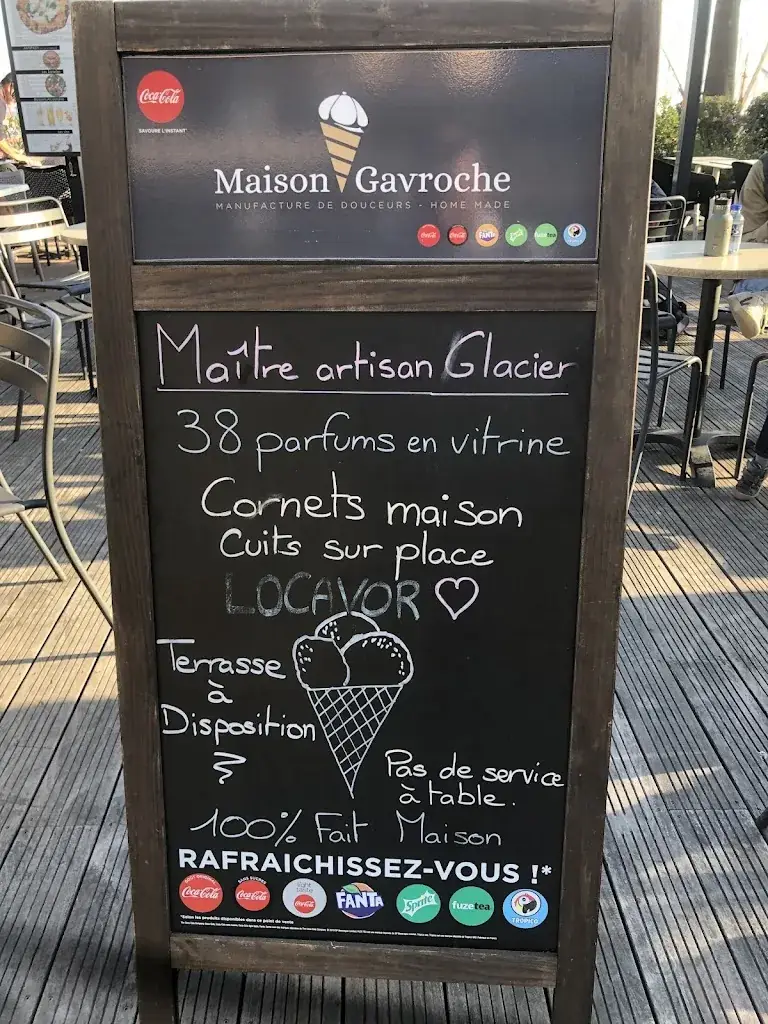 Coca-Cola
SAVOURE L'INSTANT
Maison Gavroche
MANUFACTURE DE DOUCEURS - HOME MADE
Coca-Cola Coca-Cola FANTA Sprite fuzetea
Maître artisan Glacier
38 parfums en vitrine
Cornets maison
Cuits sur place
LOCAVOR
Terrasse
à
Disposition
Pas de service
à table.
100% Fait Maison
RAFRAICHISSEZ-VOUS !*
GOÛT ORIGINAL Coca-Cola
SANS SUCRES Coca-Cola
light taste Coca-Cola
FANTA
Sprite
fuzetea
TROPICO
*Selon les produits disponibles dans ce point de vente